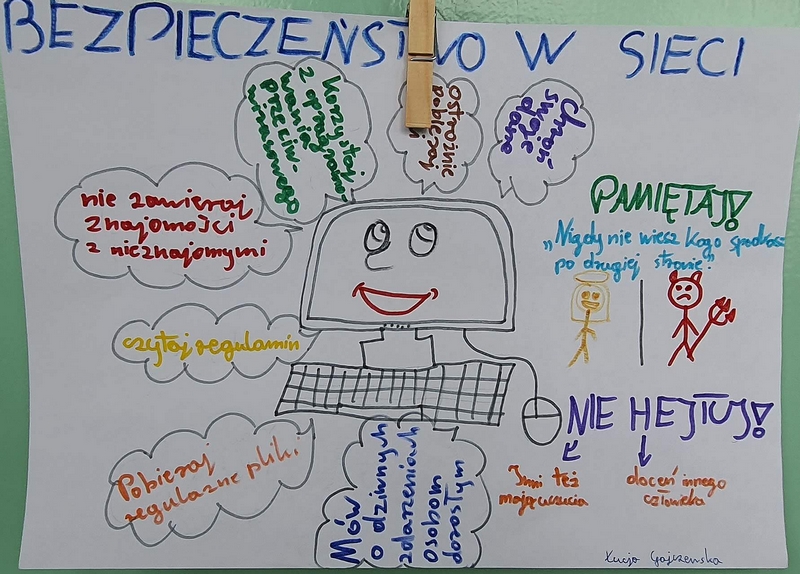 BEZPIECZEŃSTWO W SIECI
Korzystaj
z oprogramo-
wania
przeciw-
wirusowego
ostrożnie
pobieraj
chroń
swoje
dane
nie zawieraj
znajomości
z nieznajomymi
czytaj regulamin
Pobieraj
regularne pliki
Mów
o dziwnych
zdarzeniach
osobom
dorosłym
PAMIĘTAJ!
„Nigdy nie wiesz kogo spotkasz
po drugiej stronie."
NIE HEJTUJ!
Inni też
mają uczucia
doceń innego
człowieka